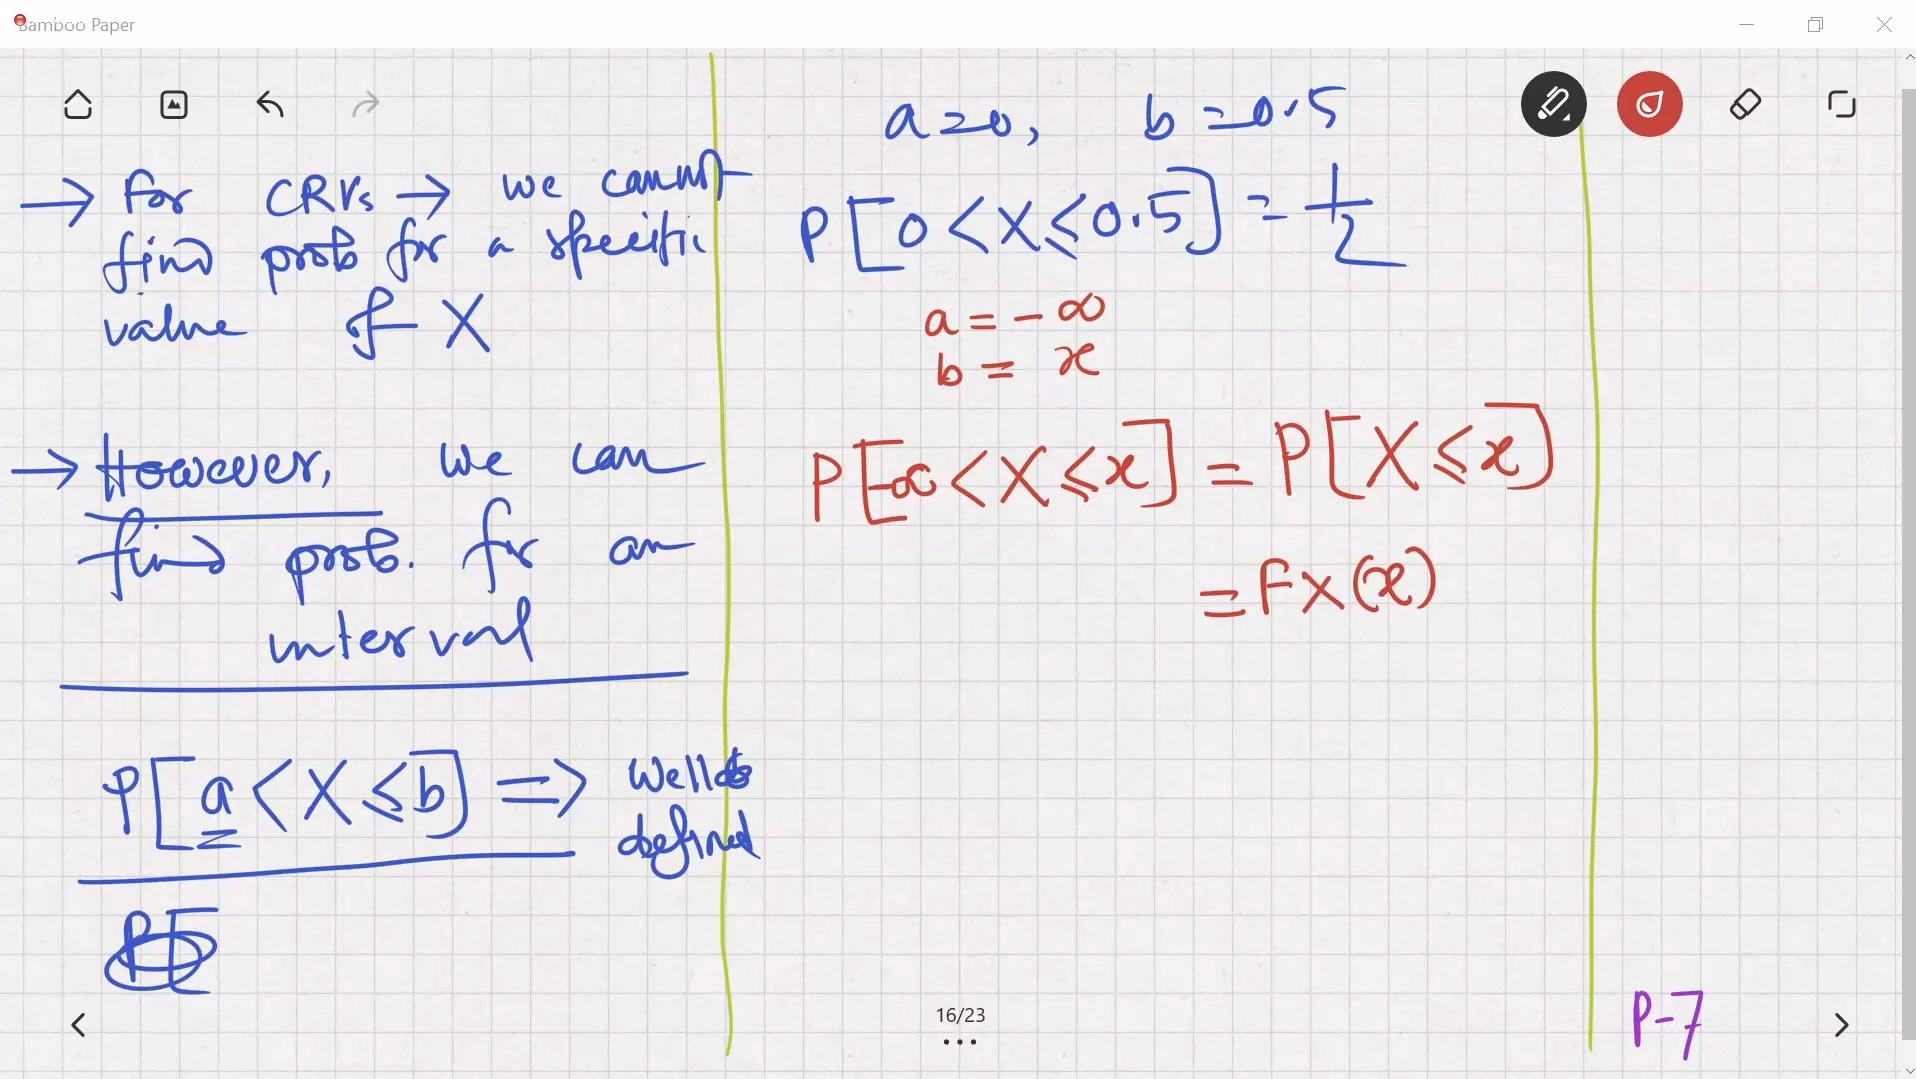 Bamboo Paper
→ For CRVs → we cannot
find prob for a specific
value of X
→ However, we can
find prob. for an
interval
P[a < X ≤ b] => Well
defined
P[
a = 0, b = 0.5
P[0 < X ≤ 0.5] = 1/2
a = -∞
b = x
P[-∞ < X ≤ x] = P[X ≤ x]
= FX(x)
16/23
P-7